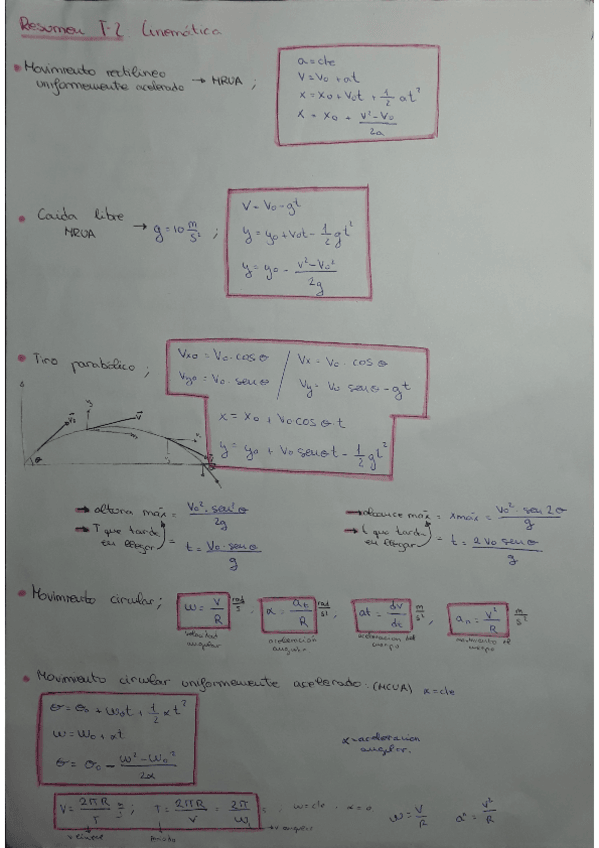 Resumen T-2 Cinemática
Movimiento rectilíneo
uniformemente acelerado → MRUA ;
a = cte
V = V₀ + at
x = x₀ + V₀t + 1/2 at²
x = x₀ - (V² - V₀)/2a
Caída libre
MRUA → g = 10 m/s² ;
V = V₀ - gt
y = y₀ + V₀t - 1/2 gt²
y = y₀ - (V² - V₀²)/2g
Tiro parabólico ;
Vx₀ = V₀ · cos θ / Vx = V₀ · cos θ
Vy₀ = V₀ · sen θ / Vy = V₀ sen θ - gt
x = x₀ + V₀ cos θ t
y = y₀ + V₀ sen θ t - 1/2 gt²
→ altura máx = (V₀² · sen² θ)/2g
→ T que tarda en llegar = t = (V₀ · sen θ)/g
→ alcance máx = xmáx = (V₀² · sen 2θ)/g
→ t que tarda en llegar = t = (2 V₀ sen θ)/g
Movimiento circular ;
ω = V/R rad/s , α = at/R rad/s² , at = dV/dt m/s² , an = V²/R m/s²
velocidad angular
aceleración angular
aceleración del
Movimiento circular uniformemente acelerado (MCUA) α = cte
θ = θ₀ + ω₀t + 1/2 αt²
ω = ω₀ + αt
θ = θ₀ - (ω² - ω₀²)/2α
α = aceleración
angular.
V = 2πR/T m/s ; T = 2πR/V = 2π/ω ; ω = cte · α = 0 ω = V/R a = V²/R